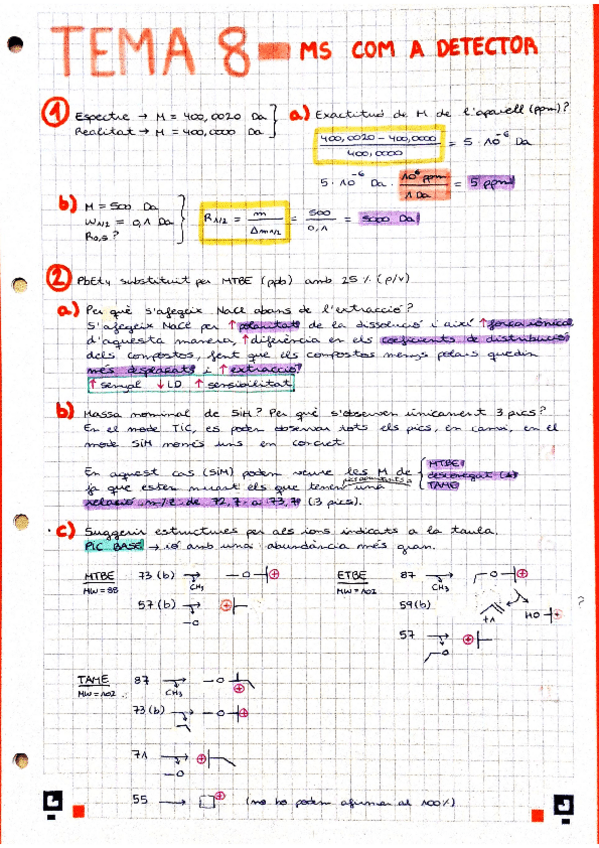 TEMA 8 - MS COM A DETECTOR
1 Espectre → M = 400,0020 Da
Realitat → M = 400,0000 Da
a) Exactitud de M de l'aparell (ppm)?
400,0020 - 400,0000 / 400,0000 = 5 · 10⁻⁶ Da
5 · 10⁻⁶ Da · 10⁶ ppm / 1 Da = 5 ppm
b) M = 500 Da
W₁/₂ = 0,1 Da
R₀,₅ ?
R₁/₂ = m / Δm₁/₂ = 500 / 0,1 = 5000 Da
2 PbEt₄ substituit per MTBE (ppb) amb 25 % (p/v)
a) Per què s'afegeix NaCl abans de l'extracció?
S'afegeix NaCl per ↑ polaritat de la dissolució i així ↑ força iònica
d'aquesta manera, ↑ diferència en els coeficients de distribució
dels compostos, fent que els compostos menys polars quedin
més desplaçats i ↑ extracció
↑ senyal ↓ LD ↑ sensibilitat
b) Massa nominal de SIM? Per què s'observen únicament 3 pics?
En el mode TIC, es poden observar tots els pics, en canvi, en el
mode SIM només uns en concret.
En aquest cas (SIM) podem veure les M de
MTBE
desconegut
TAME
ja que estem mirant els que tenen una
relació m/z de 72,7 a 73,7 (3 pics).
c) Suggerir estructures per als ions indicats a la taula.
PIC BASE → ió amb una abundància més gran.
MTBE 73 (b) → CH₃ -O ⊕
MW = 88
57 (b) → -O ⊕
ETBE 87 → CH₃ O ⊕
MW = 102
59 (b) HO ⊕ ?
57 → O ⊕
TAME 87 → CH₃ -O ⊕
MW = 102
73 (b) → -O ⊕
71 → -O ⊕
55 → ⊕ (no ho podem afirmar al 100%)